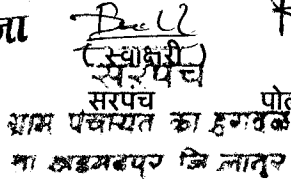 (स्वाक्षरी)
सरपंच
सरपंच
ग्राम पंचायत का हगदळ
ता अहमदपुर जि लातुर